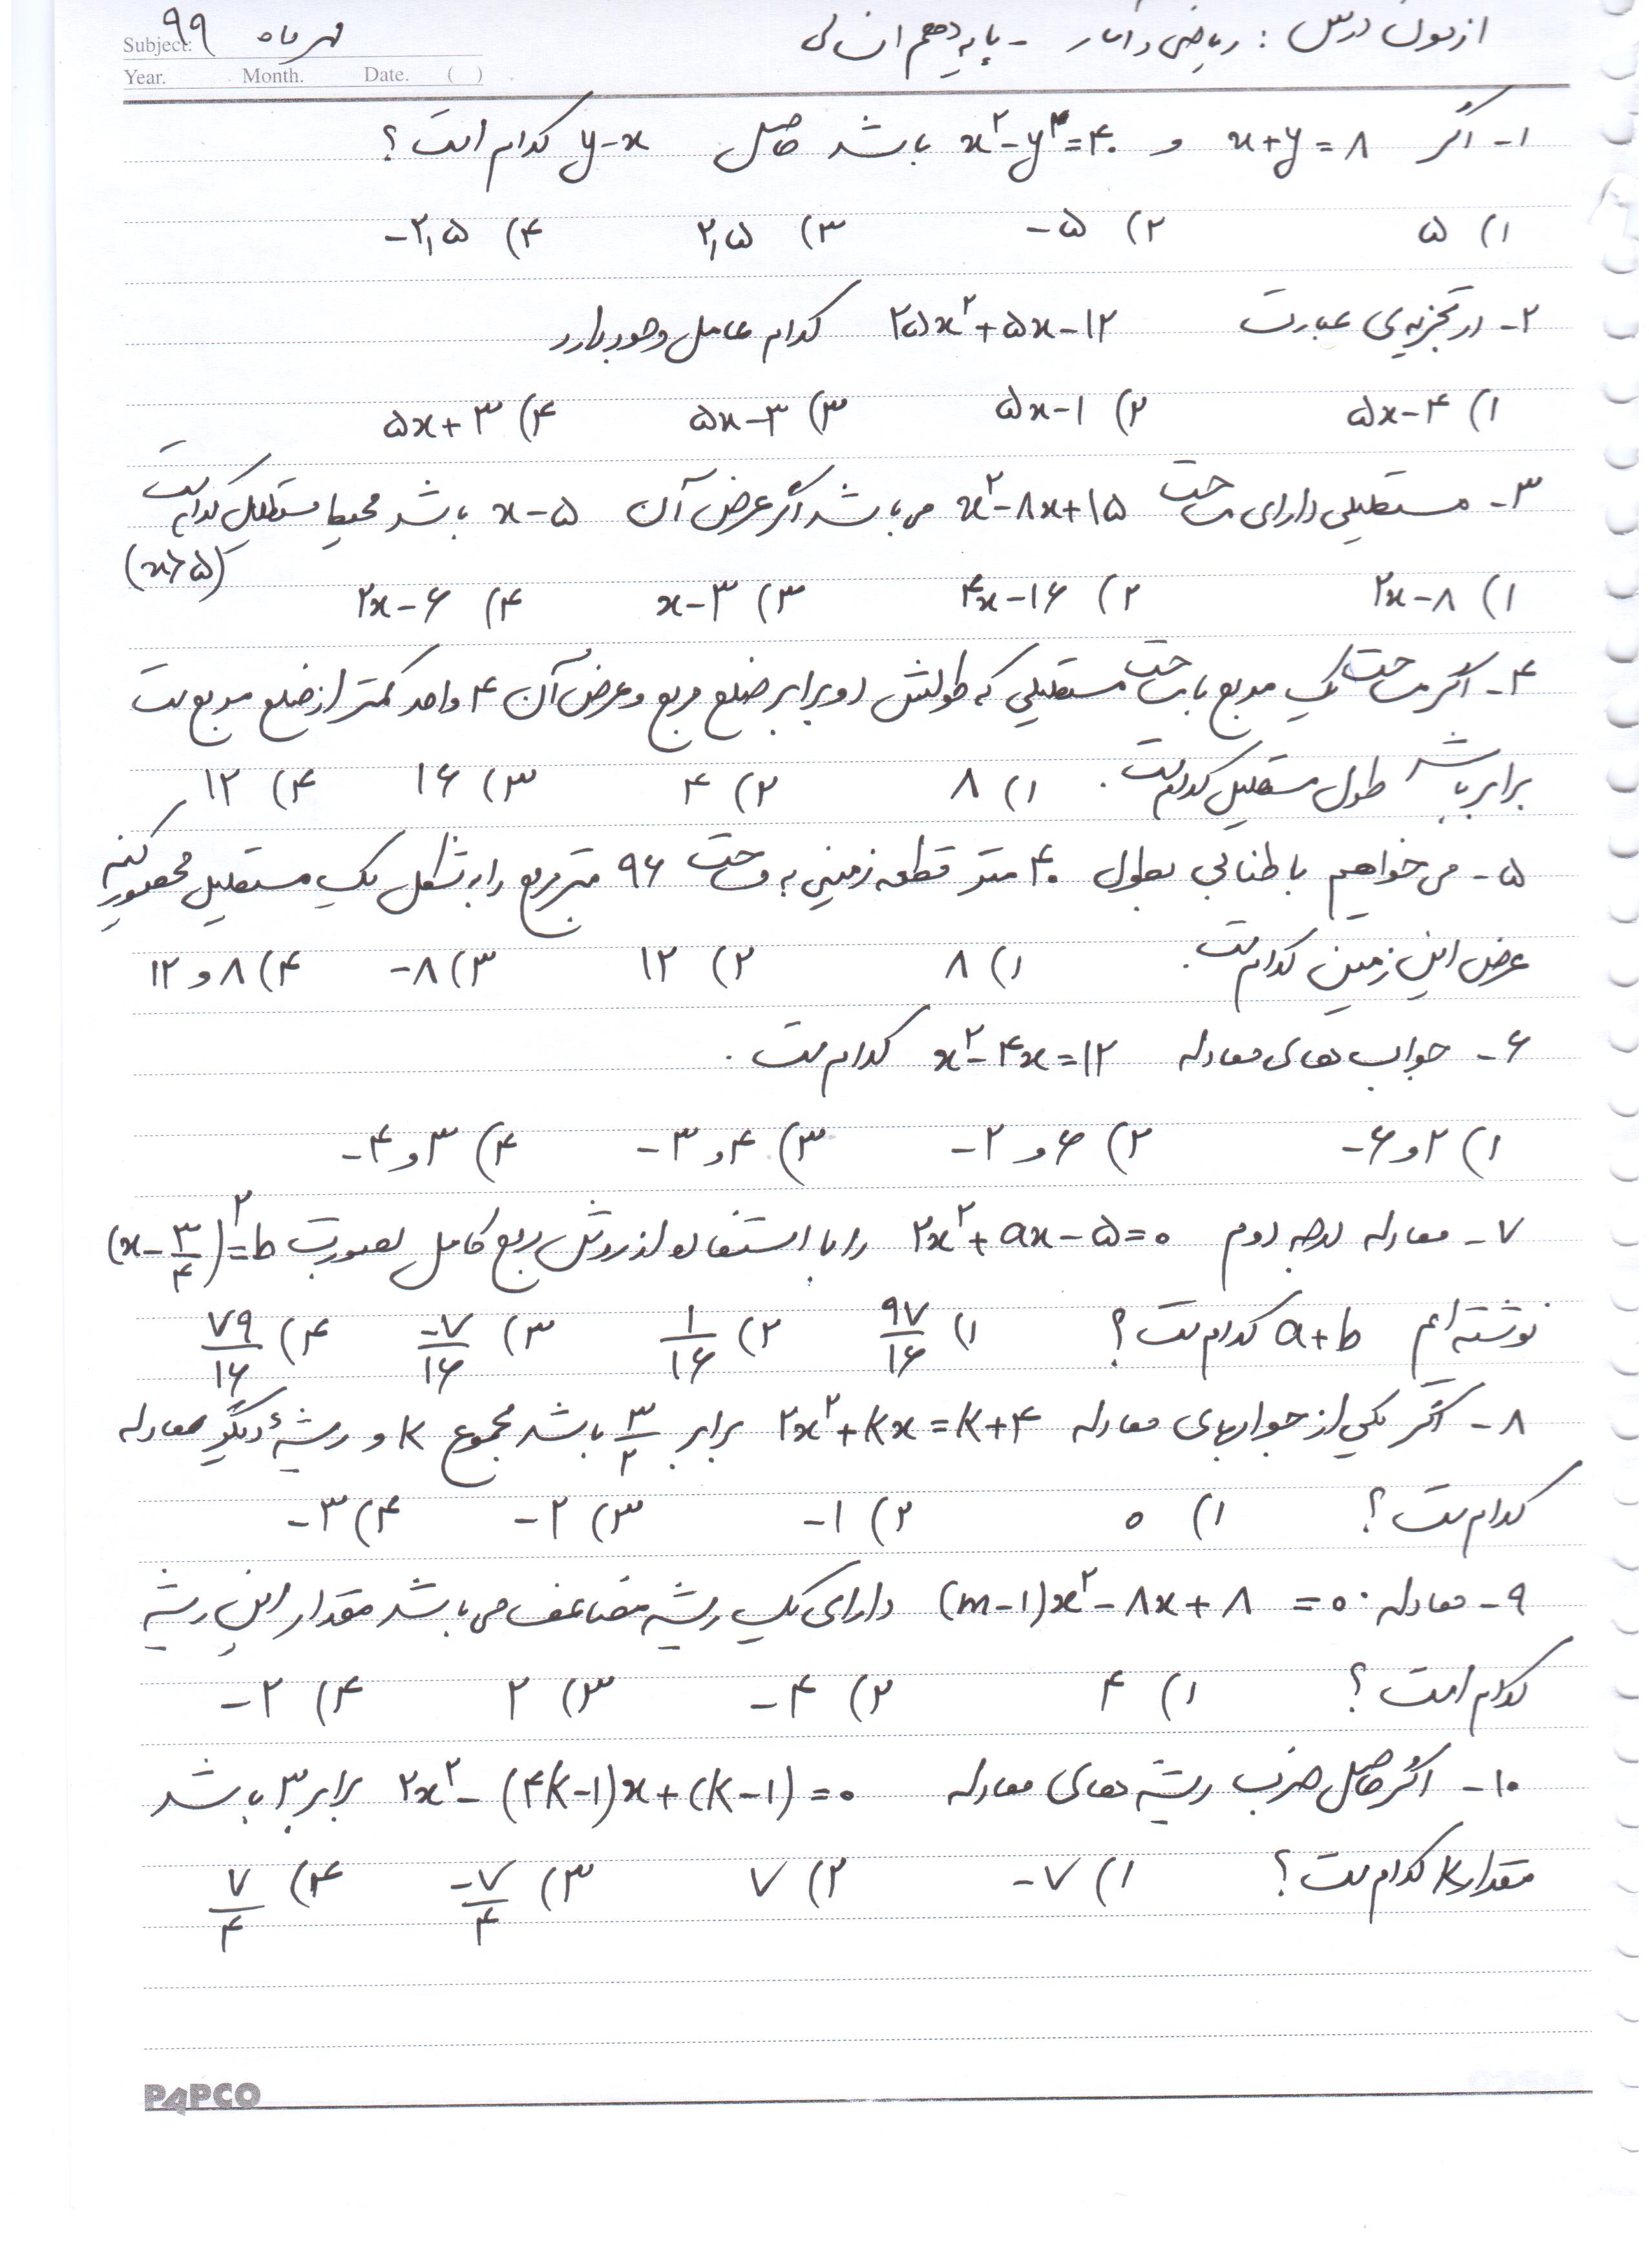 آزمون درس : ریاضی و آمار - پایه دهم انسانی
مهرماه ۹۹
Subject:
Year. Month. Date. ( )
۱- اگر x+y=۸ و x²-y²=۴۰ باشد حاصل y-x کدام است؟
۱) ۵ ۲) -۵ ۳) ۲,۵ ۴) -۲,۵
۲- در تجزیه‌ی عبارت ۲۵x²+۵x-۱۲ کدام عامل وجود دارد
۱) ۵x-۴ ۲) ۵x-۱ ۳) ۵x-۳ ۴) ۵x+۳
۳- مستطیلی دارای مساحت x²-۸x+۱۵ می باشد اگر عرض آن x-۵ باشد محیط مستطیل کدام است
(x>۵)
۱) ۲x-۸ ۲) ۴x-۱۶ ۳) x-۳ ۴) ۲x-۶
۴- اگر مساحت یک مربع با مساحت مستطیلی که طولش دو برابر ضلع مربع و عرض آن ۴ واحد کمتر از ضلع مربع است
برابر باشد طول مستطیل کدام است. ۱) ۸ ۲) ۴ ۳) ۱۶ ۴) ۱۲
۵- می خواهیم با طنابی بطول ۴۰ متر قطعه زمینی به مساحت ۹۶ متر مربع را به شکل یک مستطیل محصور کنیم
عرض این زمین کدام است. ۱) ۸ ۲) ۱۲ ۳) -۸ ۴) ۸ و ۱۲
۶- جواب های معادله x²-۴x=۱۲ کدام است.
۱) ۲ و -۶ ۲) ۶ و -۲ ۳) ۴ و -۳ ۴) ۳ و -۴
۷- معادله درجه دوم ۲x²+ax-۵=۰ را با استفاده از روش مربع کامل بصورت (x-۳/۴)²=b
نوشته ایم a+b کدام است؟ ۱) ۹۷/۱۶ ۲) ۱/۱۶ ۳) -۷/۱۶ ۴) ۷۹/۱۶
۸- اگر یکی از جوابهای معادله ۲x²+kx=k+۴ برابر ۳/۲ باشد مجموع k و ریشهٔ دیگر معادله
کدام است؟ ۱) ۰ ۲) -۱ ۳) -۲ ۴) -۳
۹- معادله (m-۱)x²-۸x+۸=۰ دارای یک ریشه مضاعف می باشد مقدار این ریشه
کدام است؟ ۱) ۴ ۲) -۴ ۳) ۲ ۴) -۲
۱۰- اگر حاصل ضرب ریشه های معادله ۲x²-(۴k-۱)x+(k-۱)=۰ برابر ۳ باشد
مقدار k کدام است؟ ۱) -۷ ۲) ۷ ۳) -۷/۴ ۴) ۷/۴
PAPCO